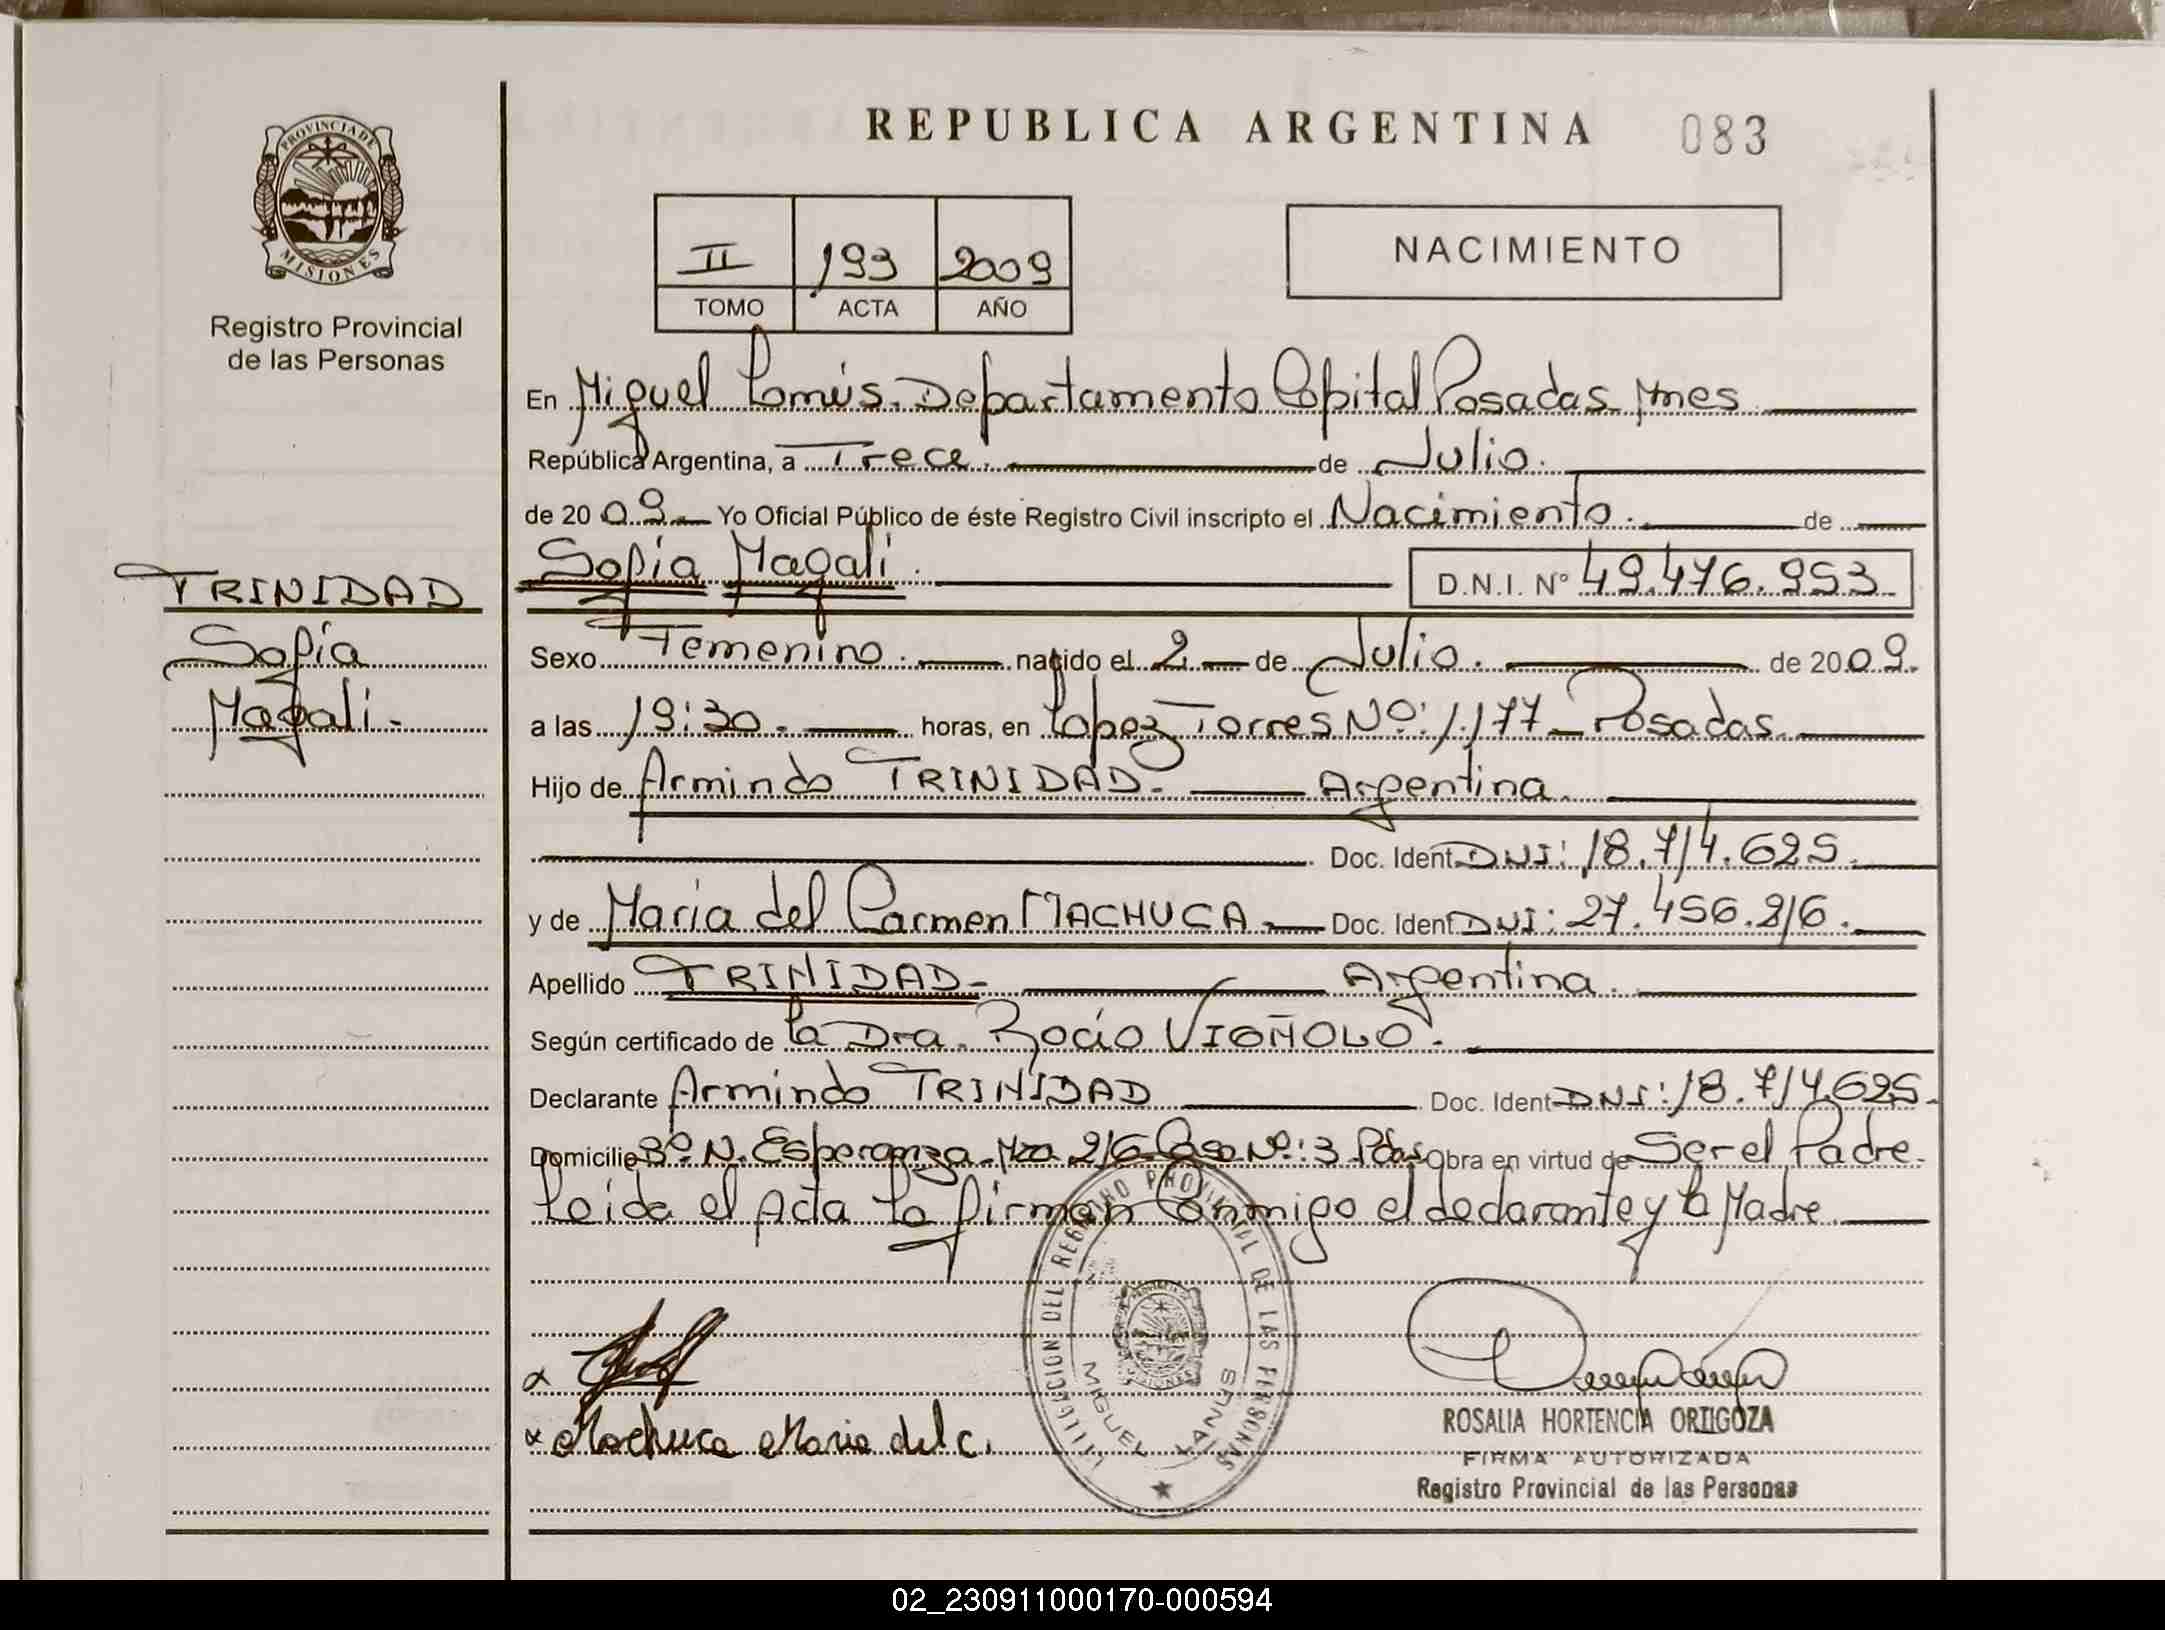 REPUBLICA ARGENTINA 083
PROVINCIA DE
MISIONES
Registro Provincial
de las Personas
II 193 2009
TOMO ACTA AÑO
NACIMIENTO
En Miguel Lanús. Departamento Capital Posadas Mnes
República Argentina, a Trece. de Julio.
de 2009. Yo Oficial Público de éste Registro Civil inscripto el Nacimiento. de
TRINIDAD
Sofía
Magali.-
Sofía Magali. D.N.I. Nº 49.476.953
Sexo Femenino. nacido el 2 de Julio. de 2009.
a las 19:30. horas, en Lopez Torres Nº: 1.177 - Posadas.
Hijo de Armindo TRINIDAD.- Argentina.
Doc. Ident DNI: 18.714.625.
y de María del Carmen MACHUCA.- Doc. Ident DNI: 27.456.216.
Apellido TRINIDAD.- Argentina.
Según certificado de la Dra. Rocío VIGÑOLO.
Declarante Armindo TRINIDAD Doc. Ident DNI: 18.714.625.
Domicilio Bº N. Esperanza Mza 216 Casa Nº: 3 Pdas Obra en virtud de Ser el Padre.
Leida el Acta La firman Conmigo el declarante y la Madre.
DEL REGISTRO PROVINCIAL DE LAS PERSONAS
MIGUEL LANUS
x
x Machuca Maria del c.
ROSALIA HORTENCIA ORTIGOZA
FIRMA AUTORIZADA
Registro Provincial de las Personas
02_230911000170-000594